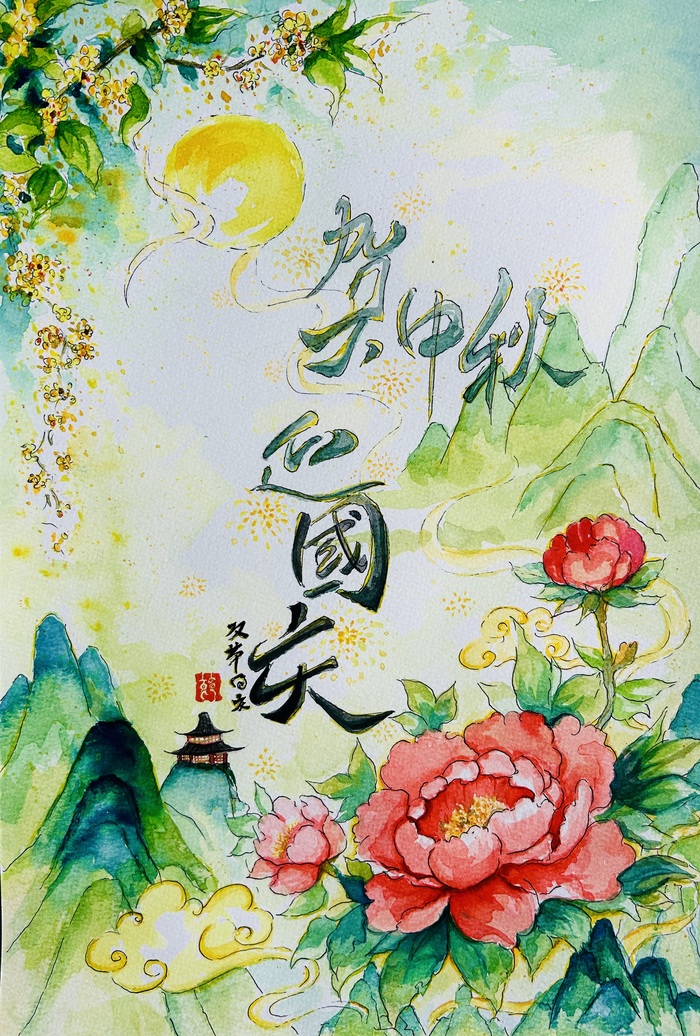 贺中秋
迎國庆
双节同庆